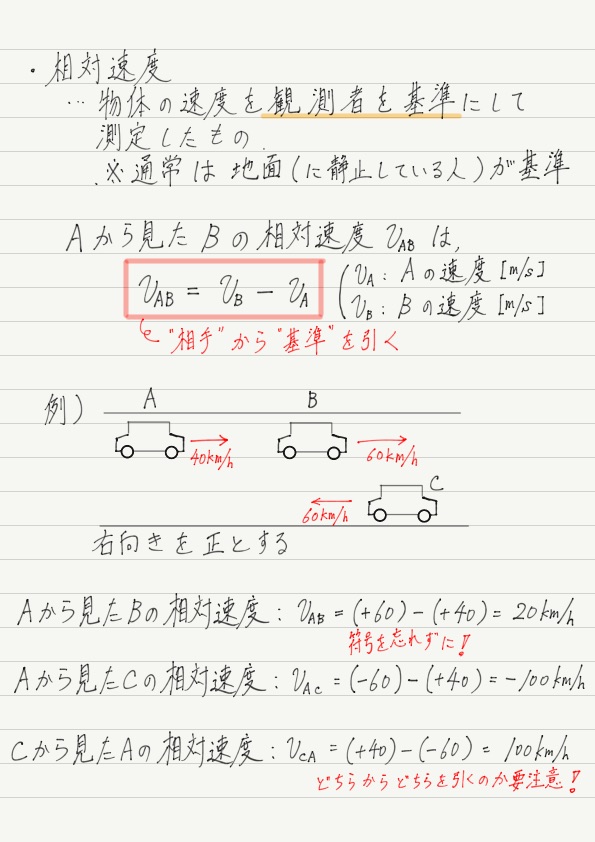 ・相対速度
…物体の速度を観測者を基準にして
測定したもの.
※通常は地面(に静止している人)が基準
Aから見たBの相対速度 VAB は,
VAB = VB − VA
(VA : Aの速度 [m/s]
VB : Bの速度 [m/s]
"相手"から"基準"を引く
例)
A B
40km/h 60km/h
C
60km/h
右向きを正とする
Aから見たBの相対速度 : VAB = (+60)−(+40) = 20km/h
符号を忘れずに!
Aから見たCの相対速度 : VAC = (−60)−(+40) = −100km/h
Cから見たAの相対速度 : VCA = (+40)−(−60) = 100km/h
どちらからどちらを引くのか要注意!